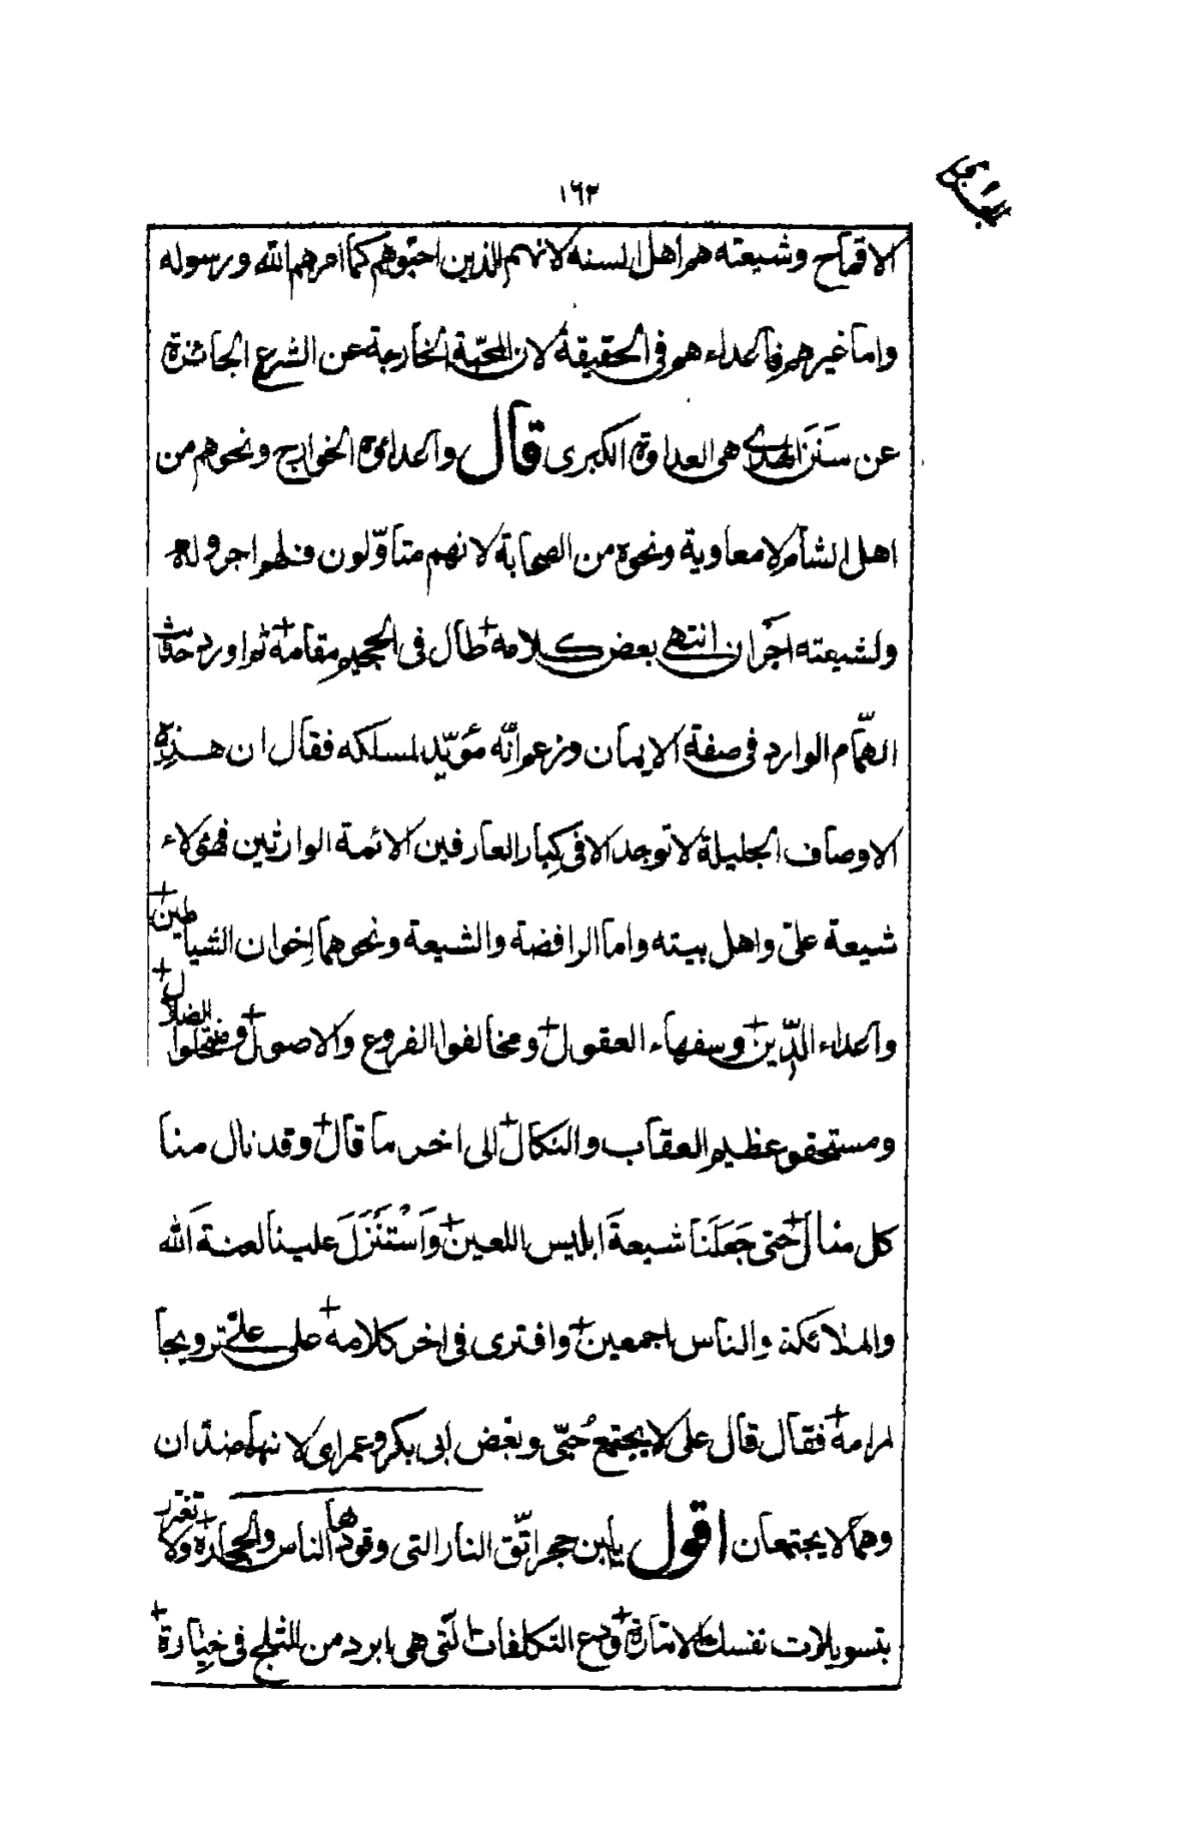 ١٦٣
الاقماح وشيعته هم اهل السنه لانهم الذين احبّوهم كما امرهم الله ورسوله
واما غيرهم فاعداءهم فى الحقيقة لان المحبّة الخارجة عن الشرع الجائزة
عن سَنَن الهدى هى العداوة الكبرى قال واعداؤه الخوارج ونحوهم من
اهل الشام لا معاوية ونحوه من الصحابة لانهم متاوّلون فلهم اجر وله
ولشيعته اجران انتهى بعض كلامه طال فى الجحيم مقامه ثم اورد حديث
الهمّام الوارد فى صفة الايمان وزعم انّه مؤيّد لمسلكه فقال ان هذه
الاوصاف الجليلة لا توجد الا فى كبار العارفين الائمة الوارثين فهؤلاء
شيعة علىّ واهل بيته واما الرافضة والشيعة ونحوهما اخوان الشياطين
واعداء الدّين وسفهاء العقول ومخالفوا الفروع والاصول ومنتحلوا الضلال
ومستحقو عظيم العقاب والنكال الى اخر ما قال وقد نال منا
كل منال حتى جَعَلَنا شيعةَ ابليس اللعين وَاسْتَنْزَلَ علينا لعنةَ الله
والملائكة والناس اجمعين وافترى فى اخر كلامه على علىّ ترويجا
لمرامه فقال قال على لا يجتمع حُبّى وبغض ابى بكر وعمر اى لانهما ضدّان
وهما لا يجتمعان اقول يا بن حجر اتّق النار التى وقودها الناس والحجارة ولا تغتر
بتسويلات نفسك الامّارة ودع التكلفات الّتى هى ابرد من الثلج فى خيارة